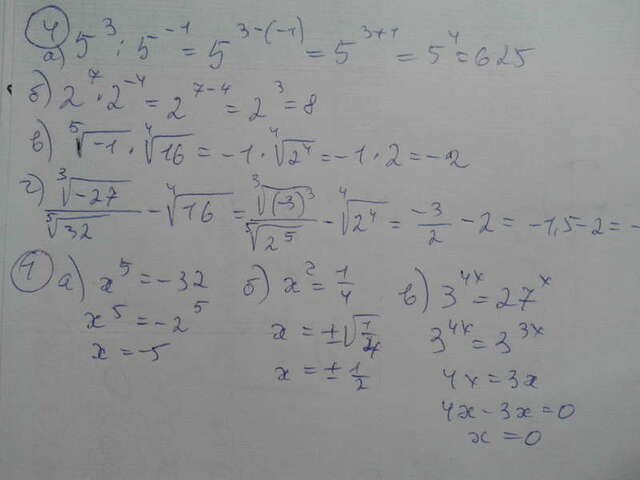 4
а) 5³ : 5⁻¹ = 5³⁻⁽⁻¹⁾ = 5³⁺¹ = 5⁴ = 625
б) 2⁷ · 2⁻⁴ = 2⁷⁻⁴ = 2³ = 8
в) ⁵√-1 · ⁴√16 = -1 · ⁴√2⁴ = -1 · 2 = -2
г) ³√-27 / ⁵√32 - ⁴√16 = ³√(-3)³ / ⁵√2⁵ - ⁴√2⁴ = -3/2 - 2 = -1,5 - 2 = -
1 а) x⁵ = -32
x⁵ = -2⁵
x = -5
б) x² = 1/4
x = ±√1/4
x = ± 1/2
в) 3⁴ˣ = 27ˣ
3⁴ˣ = 3³ˣ
4x = 3x
4x - 3x = 0
x = 0